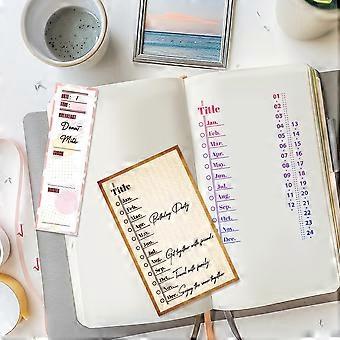 DATE: 1
BREAKFAST
Donut
Milk
Title
Jan.
Feb.
Mar.
Apr. Birthday Party
May.
Jun.
Jul.
Aug. Get together with friends
Sep.
Oct. Travel with family
Nov.
Dec. Enjoy the snow together
Title
Jan.
Feb.
Mar.
Apr.
May.
Jun.
Jul.
Aug.
Sep.
Oct.
Nov.
Dec.
01
02
03
04
05
06
07
08
09
10
11
12
13
14
15
16
17
18
19
20
21
22
23
24